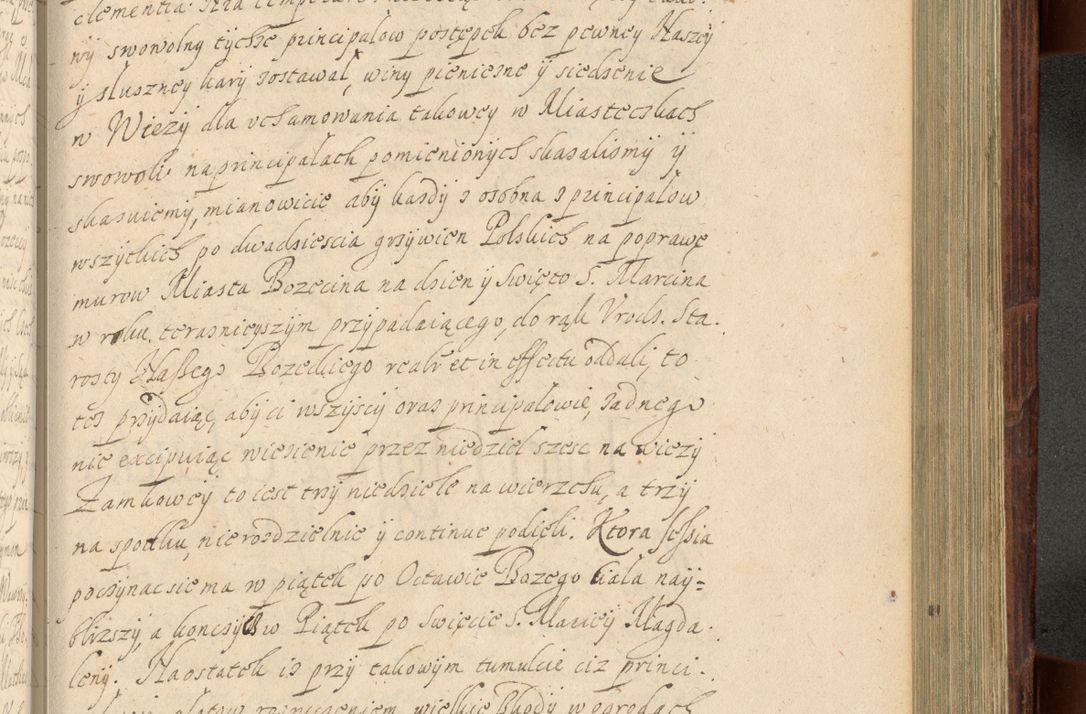 ny swowolny tychże principałow postępek bez pewney Naszey
y słuszney kary zostawał, winy pieniezne y siedzenie
w Wiezy dla vchamowania takowey w Miasteczkach
swowoli na principałach pomienionych skazalismy y
skazuiemy, mianowicie aby kazdy z osobna z principałow
wszytkich po dwadziescia grzywien Polskich na poprawę
murow Miasta Bozecina na dzien y swięto S. Marcina
w roku teraznieyszym przypadaiącego, do rąk Vrodz. Sta-
rosty Naszego Bozeckiego realr et in effectu oddali, to
tez przydaiąc, aby ci wszyscy oraz principałowie, zadnego
nie excipuiąc wiezienie przez niedziel szesc na wiezy
Zamkowey to iest trzy niedziele na wierzchu, a trzy
na spodku, nierozdzielnie y continue podięli. Ktora sessia
poczynac sie ma w piątek po Octawie Bozego Ciała nay=
blizszy, a konczyc w Piątek po Swięcie S. Mariey Magda-
leny. Naostatek iz przy takowym tumulcie ciz princi-